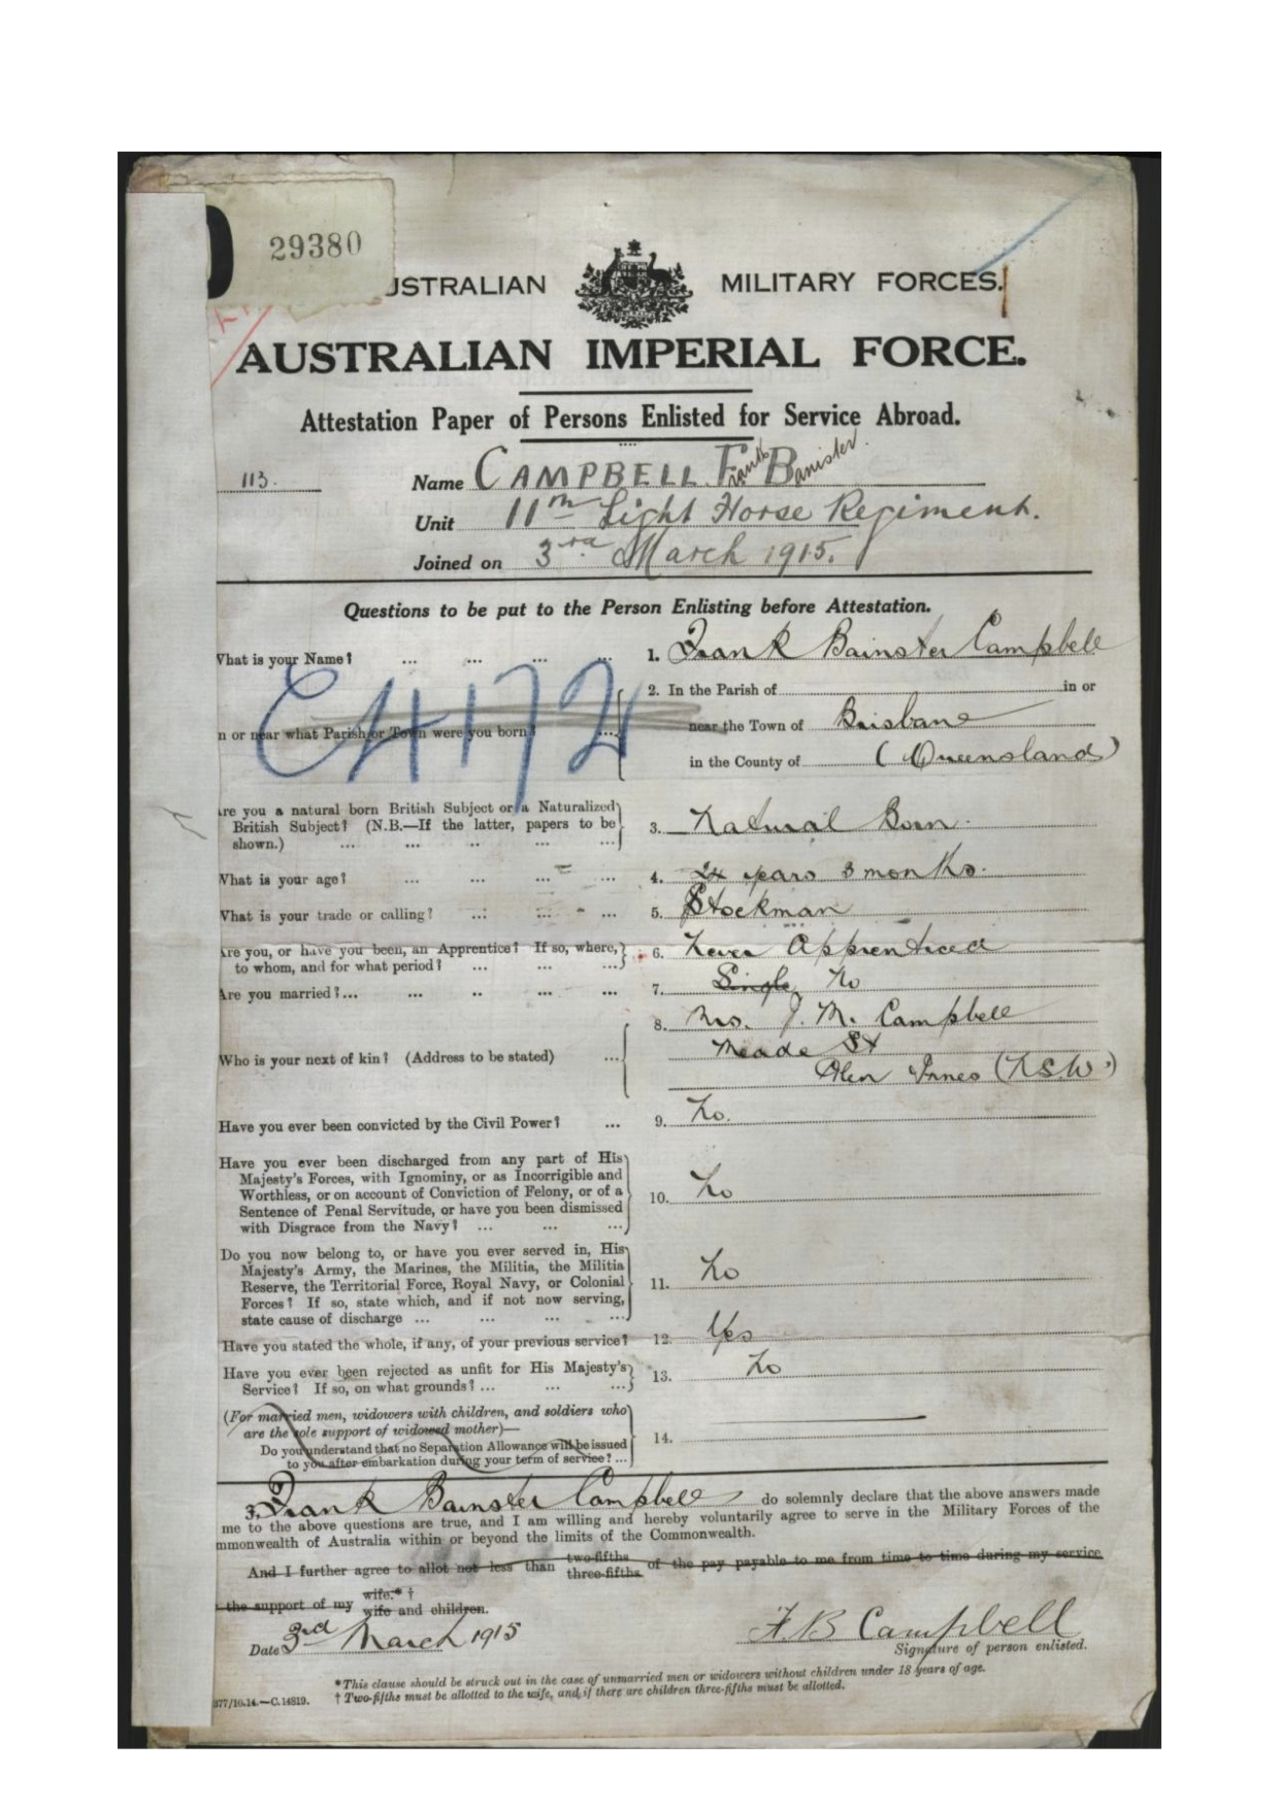 29380
USTRALIAN MILITARY FORCES.
AUSTRALIAN IMPERIAL FORCE.
Attestation Paper of Persons Enlisted for Service Abroad.
113. Name CAMPBELL Frank Banister.
Unit 11th Light Horse Regiment.
Joined on 3rd March 1915.
Questions to be put to the Person Enlisting before Attestation.
What is your Name? ... ... ... ... 1. Frank Bainster Campbell
C4172
2. In the Parish of in or
n or near what Parish or Town were you born? ... near the Town of Brisbane
in the County of (Queensland)
Are you a natural born British Subject or a Naturalized
British Subject? (N.B.—If the latter, papers to be 3. Natural Born.
shown.) ... ... .. ... ...
What is your age? ... ... ... ... 4. 24 years 3 months.
What is your trade or calling? ... ... ... 5. Stockman
Are you, or have you been, an Apprentice? If so, where, 6. Never Apprenticed
to whom, and for what period? ... ... ...
Are you married?... ... .. ... ... 7. Single No
8. Mrs. J. M. Campbell
Who is your next of kin? (Address to be stated) ... Meade St
Glen Innes (N.S.W.)
Have you ever been convicted by the Civil Power? ... 9. No.
Have you ever been discharged from any part of His
Majesty's Forces, with Ignominy, or as Incorrigible and
Worthless, or on account of Conviction of Felony, or of a 10. No
Sentence of Penal Servitude, or have you been dismissed
with Disgrace from the Navy? ... ... ...
Do you now belong to, or have you ever served in, His
Majesty's Army, the Marines, the Militia, the Militia
Reserve, the Territorial Force, Royal Navy, or Colonial 11. No
Forces? If so, state which, and if not now serving,
state cause of discharge ... ... ... ...
Have you stated the whole, if any, of your previous service? 12. Yes
Have you ever been rejected as unfit for His Majesty's 13. No
Service? If so, on what grounds? ... ... ...
(For married men, widowers with children, and soldiers who
are the sole support of widowed mother)—
Do you understand that no Separation Allowance will be issued 14.
to you after embarkation during your term of service? ...
Frank Bainster Campbell do solemnly declare that the above answers made
me to the above questions are true, and I am willing and hereby voluntarily agree to serve in the Military Forces of the
mmonwealth of Australia within or beyond the limits of the Commonwealth.
And I further agree to allot not less than two-fifths three-fifths of the pay payable to me from time to time during my service
the support of my wife.* † wife and children.
Date 3rd March 1915 F. B Campbell
Signature of person enlisted.
* This clause should be struck out in the case of unmarried men or widowers without children under 18 years of age.
† Two-fifths must be allotted to the wife, and if there are children three-fifths must be allotted.
377/10.14.—C.14819.